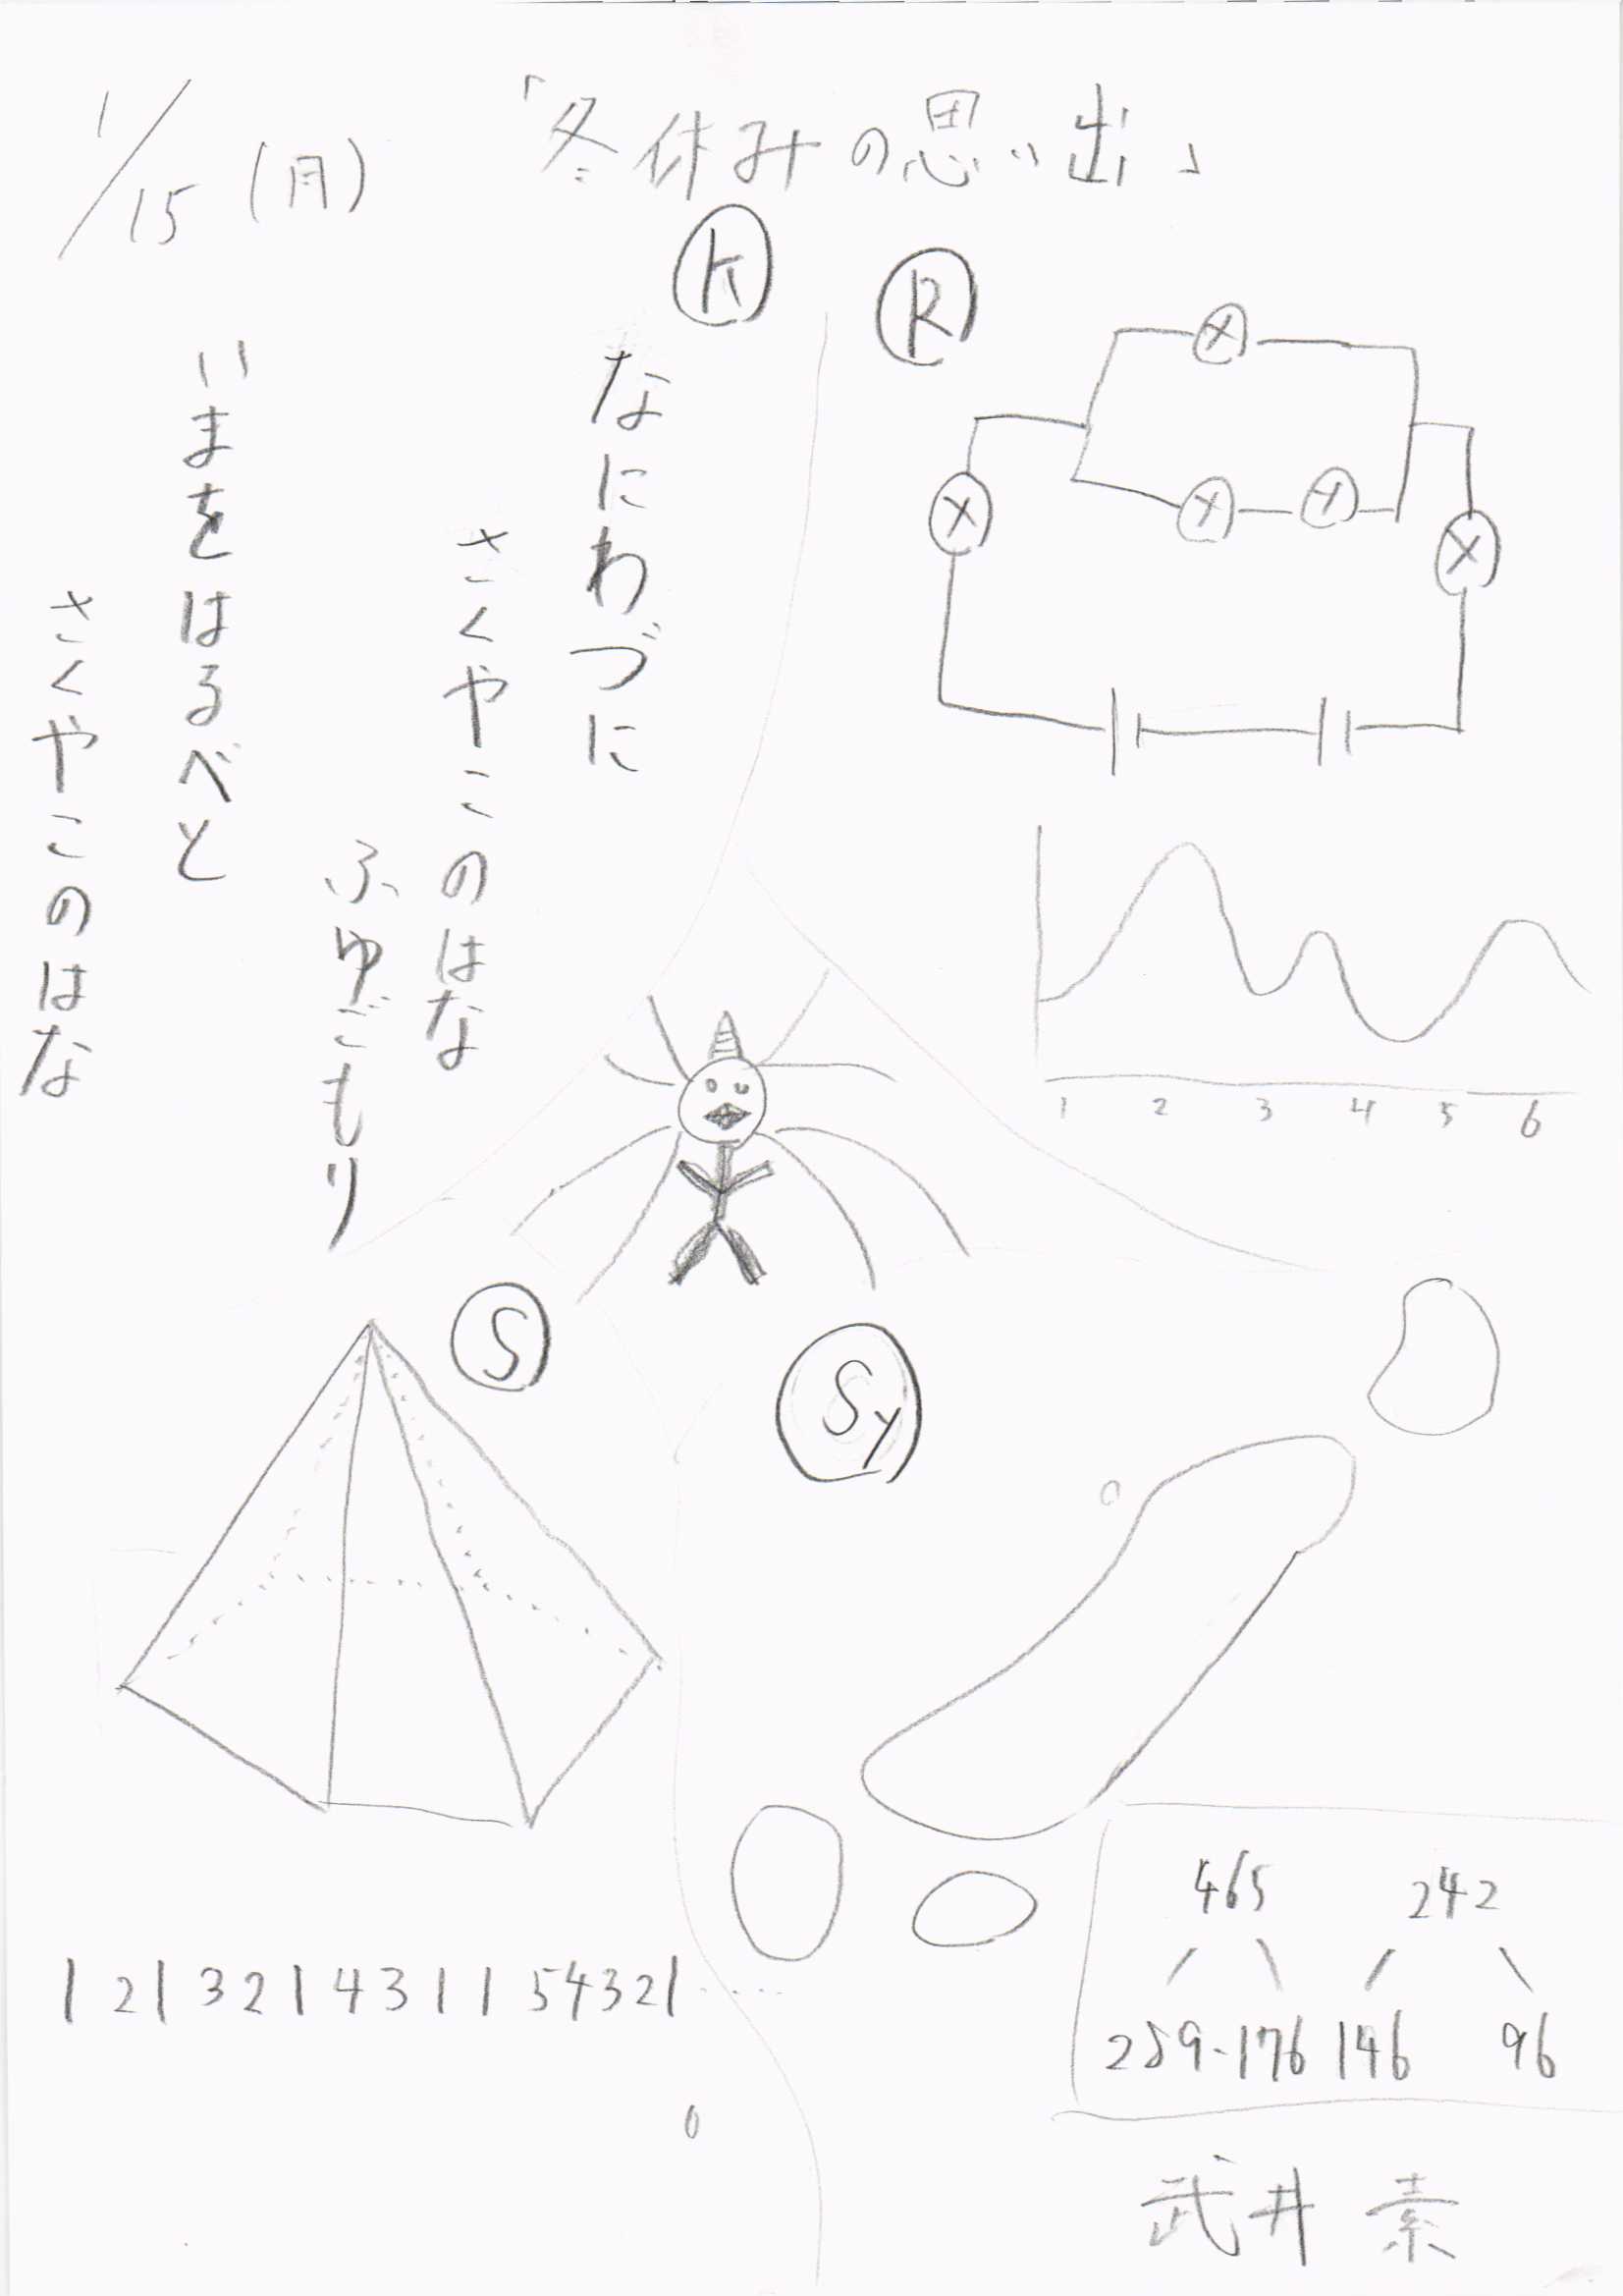 1/15(月)
「冬休みの思い出」
K
なにわづに
さくやこのはな
ふゆごもり
いまをはるべと
さくやこのはな
R
X
X
X X
X
1 2 3 4 5 6
S
Sy
1 2 1 3 2 1 4 3 1 1 5 4 3 2 1 ‥‥
0
465 242
289-176 146 96
武井 素